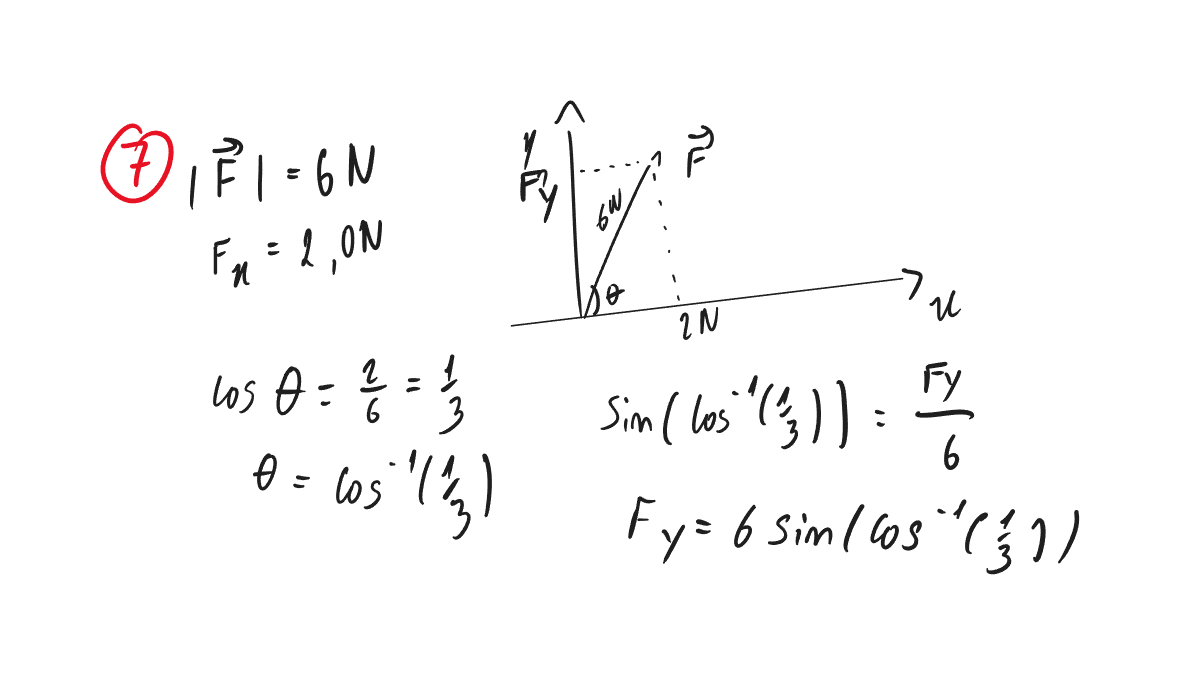 7
|F⃗| = 6 N
Fx = 2,0 N
y
Fy
6N
F⃗
θ
2N
x
cos θ = 2/6 = 1/3
θ = cos⁻¹(1/3)
sin(cos⁻¹(1/3)) = Fy/6
Fy = 6 sin(cos⁻¹(1/3))